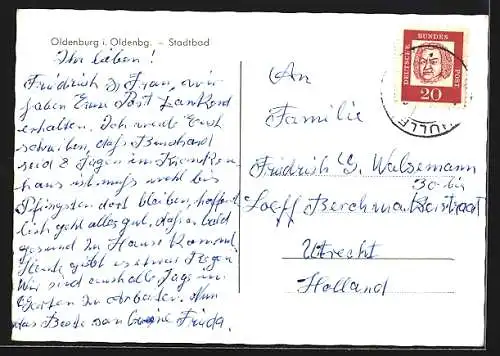 Oldenburg i. Oldenbg. – Stadtbad
Ihr lieben!
Friedrich & Frau, wir
haben Eure Post dankend
erhalten. Ich werde Euch
schreiben, daß Bernhard
seid 8 Tagen im Kranken
haus ist, muß wohl bis
Pfingsten dort bleiben, hoffent
lich geht alles gut, daß er bald
gesund zu Hause kommt.
Heute gibt es etwas Regen
Wir sind alle Tage im
Garten zu Arbeiten. Nun
das Beste von Frieda.
DEUTSCHE BUNDES POST
20
HULLE
An
Familie
Friedrich G. Walsemann
Berchmanstraat
Utrecht
Holland